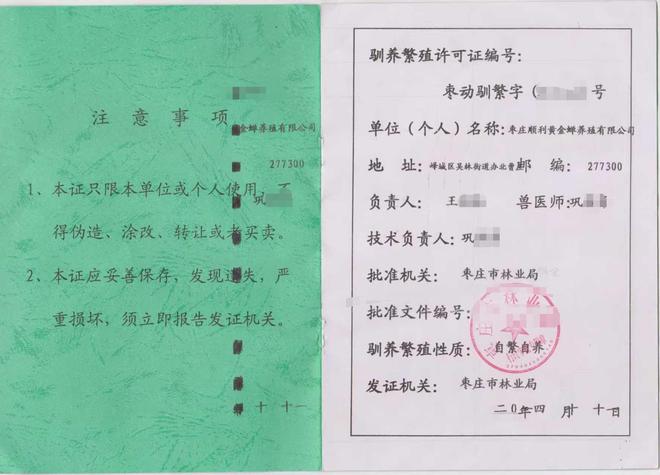 注意事项
金蝉养殖有限公司
277300
1、本证只限本单位或个人使用，不
巩
得伪造、涂改、转让或者买卖。
2、本证应妥善保存，发现遗失，严
重损坏，须立即报告发证机关。
十 十一
驯养繁殖许可证编号：
枣动驯繁字（ 号
单位（个人）名称：枣庄顺利黄金蝉养殖有限公司
地 址：峄城区吴林街道办北曹 邮 编：277300
负责人：王 兽医师：巩
技术负责人：巩
批准机关：枣庄市林业局
批准文件编号：
驯养繁殖性质：自繁自养
发证机关：枣庄市林业局
二0 年四 月十 十日
庄 林业